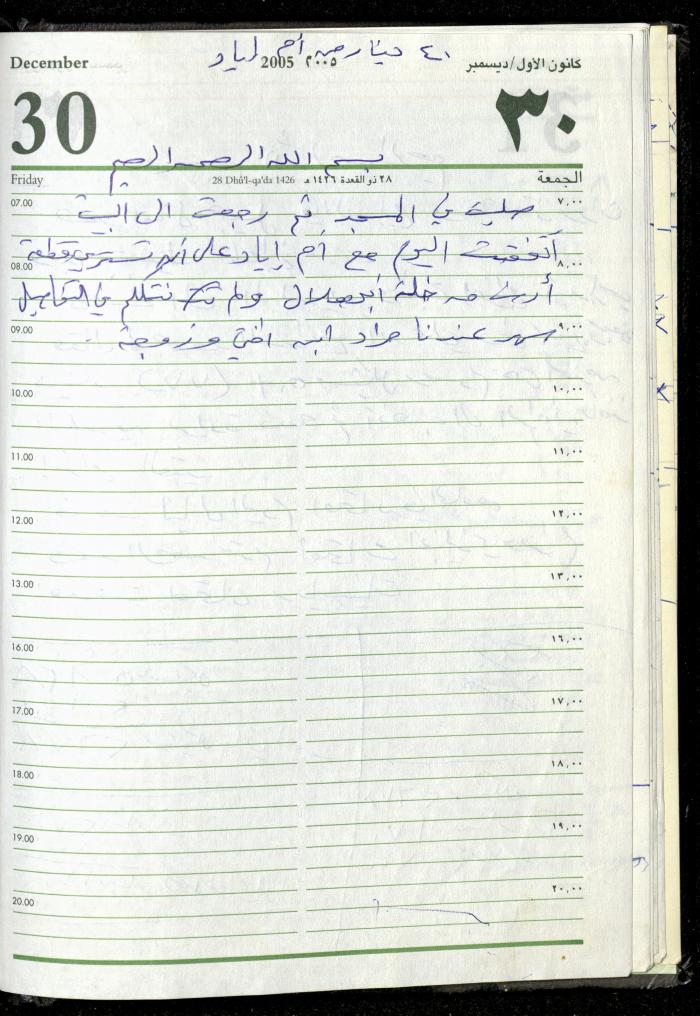 ٤٠ دينار من أم اياد
December 2005 ٢٠٠٥ كانون الأول/ديسمبر
30 ٣٠
بسم الله الرحمن الرحيم
Friday 28 Dhū'l-qa'da 1426 ٢٨ ذو القعدة ١٤٢٦ هـ الجمعة
07.00 صليت في المسجد ثم رجعت الى البيت ٧,٠٠
أتفقت اليوم مع أم إياد على أن تشتري قطعة
08.00 ٨,٠٠
أرض من خلة أبو هلال ولم نتكلم في التفاصيل
09.00 سهر عندنا مراد ابن اختي وزوجة ٩,٠٠
10.00 ١٠,٠٠
11.00 ١١,٠٠
12.00 ١٢,٠٠
13.00 ١٣,٠٠
16.00 ١٦,٠٠
17.00 ١٧,٠٠
18.00 ١٨,٠٠
19.00 ١٩,٠٠
20.00 ٢٠,٠٠